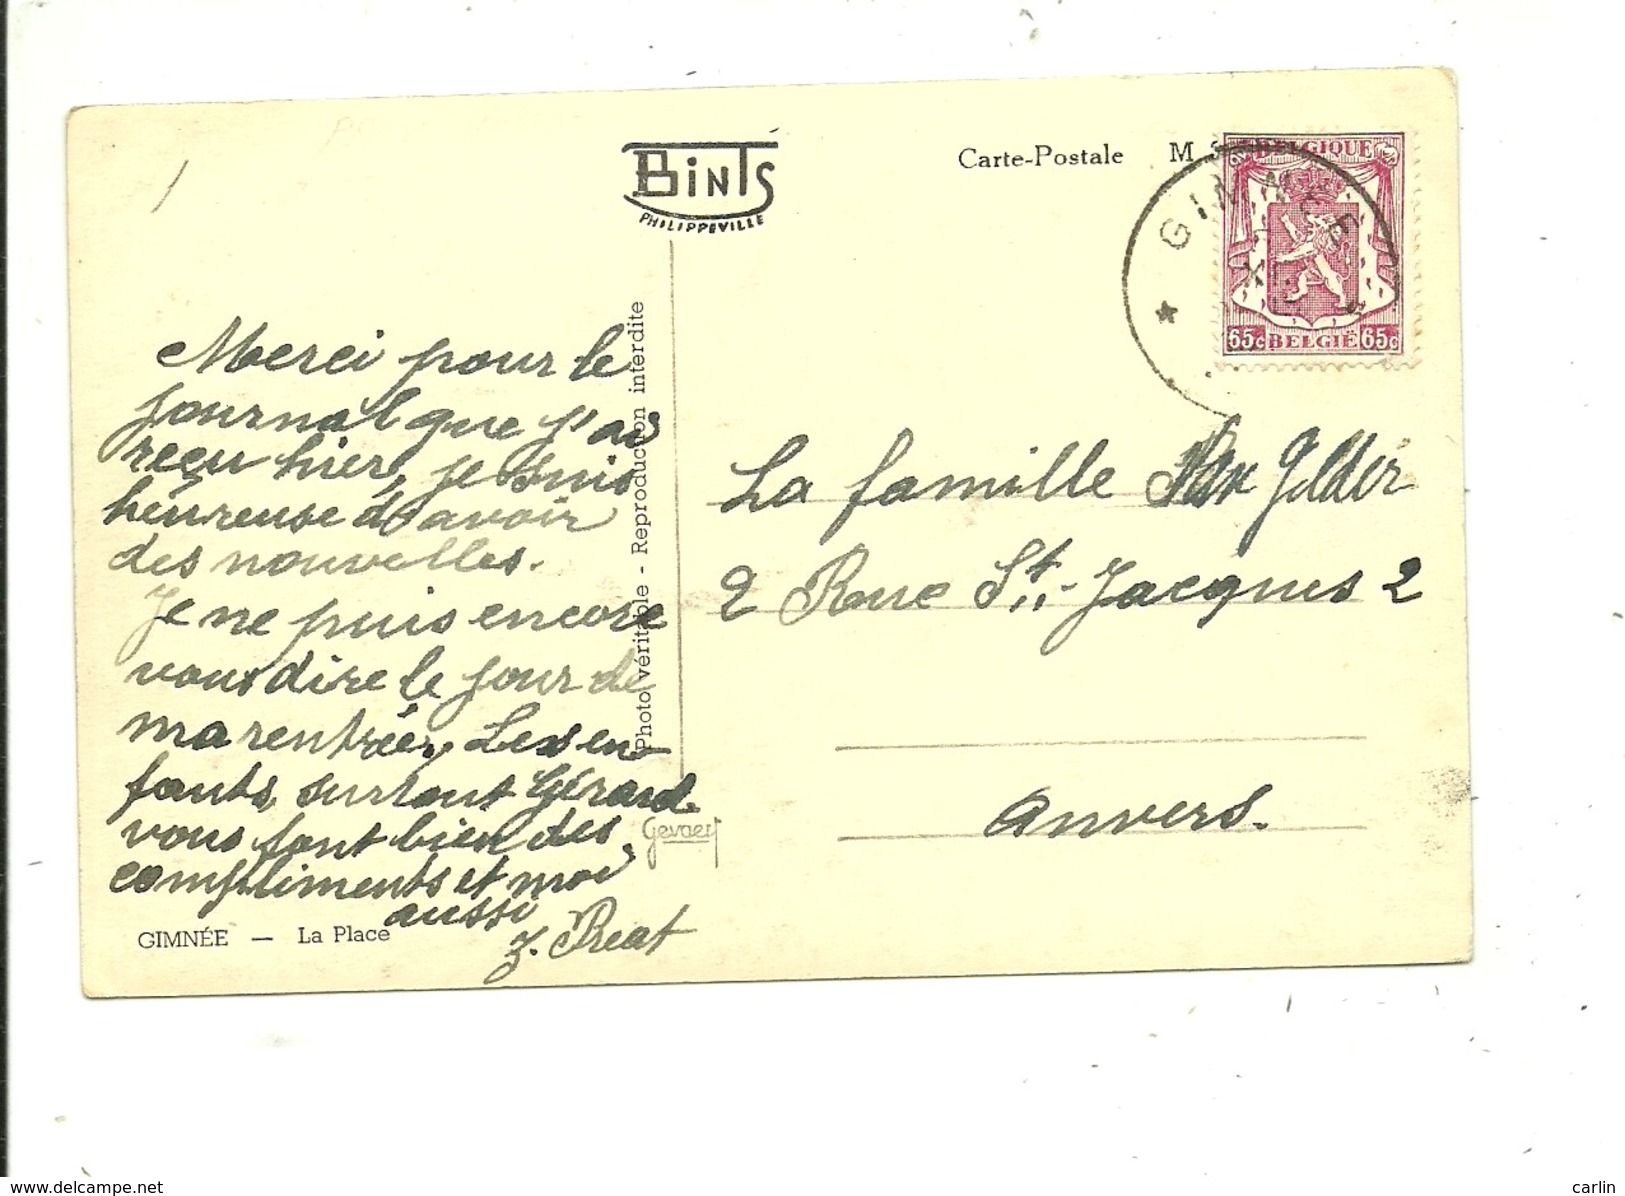 BinTS
PHILIPPEVILLE
Carte-Postale
BELGIQUE
GIMNEE
65c BELGIË 65c
Merci pour le
journal que j'ai
reçu hier, je suis
héureuse d'avoir
des nouvelles.
Je ne puis encore
vous dire le jour de
ma rentrée, Les en-
fants, surtout Gérard
vous font bien des
compliments et moi
aussi
Z. Preat
GIMNÉE — La Place
Photo véritable - Reproduction interdite
Gevaert
La famille Van Gelder
2 Rue St.-Jacques 2
Anvers.
www.delcampe.net
carlin